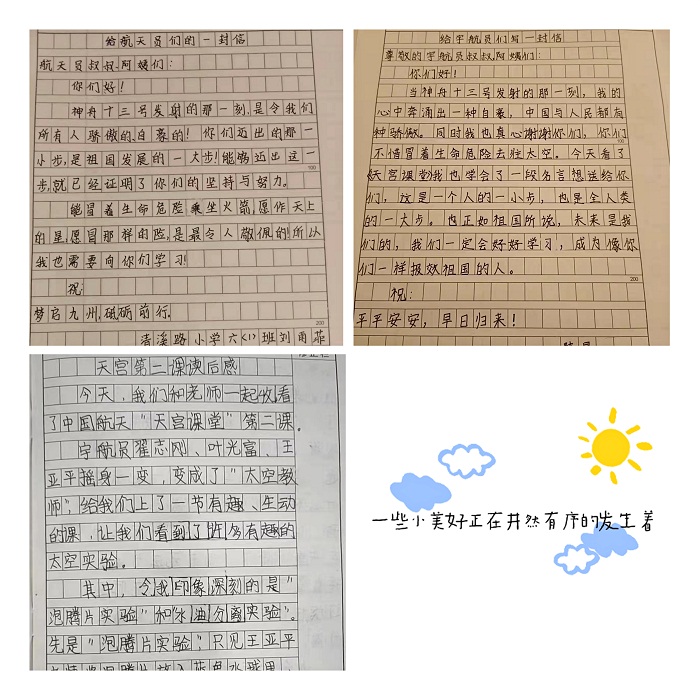 给航天员们的一封信
航天员叔叔、阿姨们：
你们好！
神舟十三号发射的那一刻,是令我们
所有人骄傲的、自豪的！你们迈出的那一
小步,是祖国发展的一大步!能够迈出这一
100
步,就已经证明了你们的坚持与努力。
能冒着生命危险乘坐火箭,愿作天上
的星,愿冒那样的险,是最令人敬佩的!所以
我也需要向你们学习!
祝:
梦启九州,砥砺前行。
200
青溪路小学六(1)班刘雨菲
给宇航员们写一封信
尊敬的宇航员叔叔阿姨们：
你们好！
当神舟十三号发射的那一刻，我的
心中奔涌出一种自豪，中国与人民都有
种骄傲。同时我也真心谢谢你们，你们
100
不惜冒着生命危险去往太空。今天看了
《天宫课堂》我也学会了一段名言想送给你
们，这是一个人的一小步，也是全人类
的一大步。也正如祖国所说，未来是我
们的，我们一定会好好学习，成为像你
们一样报效祖国的人。
200
祝：
平平安安，早日归来！
天宫第二课读后感
今天，我们和老师一起收看
了中国航天“天宫课堂”第二课。
宇航员翟志刚、叶光富、王
亚平摇身一变，变成了“太空教
师”,给我们上了一节有趣、生动
的课，让我们看到了许多有趣的
太空实验。
其中，令我印象深刻的是“
泡腾片实验”和“水油分离实验”。
先是“泡腾片实验”，只见王亚平
一些小美好正在井然有序的发生着